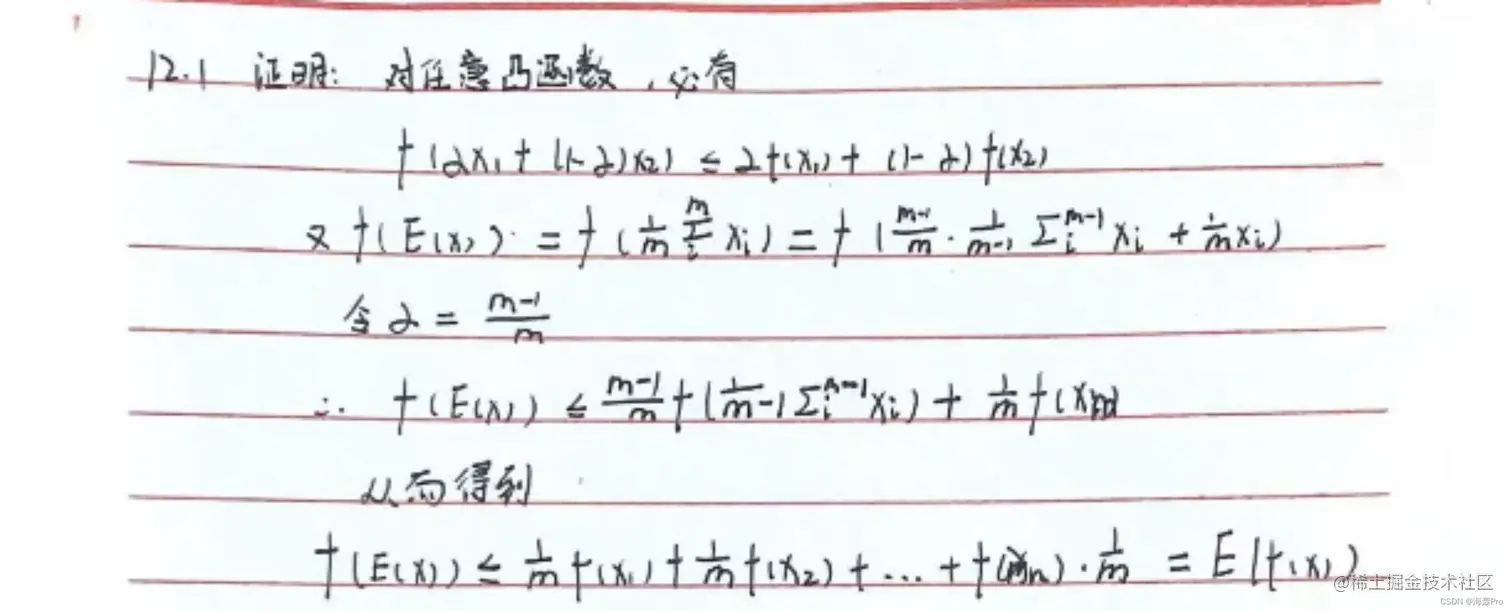 12.1 证明: 对任意凸函数,必有
f(αx₁ + (1-α)x₂) ≤ αf(x₁) + (1-α)f(x₂)
又 f(E(x)) = f(1/m Σᵢᵐ xᵢ) = f(m-1/m · 1/m-1 Σᵢᵐ⁻¹ xᵢ + 1/m xᵢ)
令 α = m-1/m
∴ f(E(x)) ≤ m-1/m f(1/m-1 Σᵢᵐ⁻¹ xᵢ) + 1/m f(xₘ)
从而得到
f(E(x)) ≤ 1/m f(x₁) + 1/m f(x₂) + ... + f(xₘ) · 1/m = E(f(x))
@稀土掘金技术社区
CSDN @海轰Pro